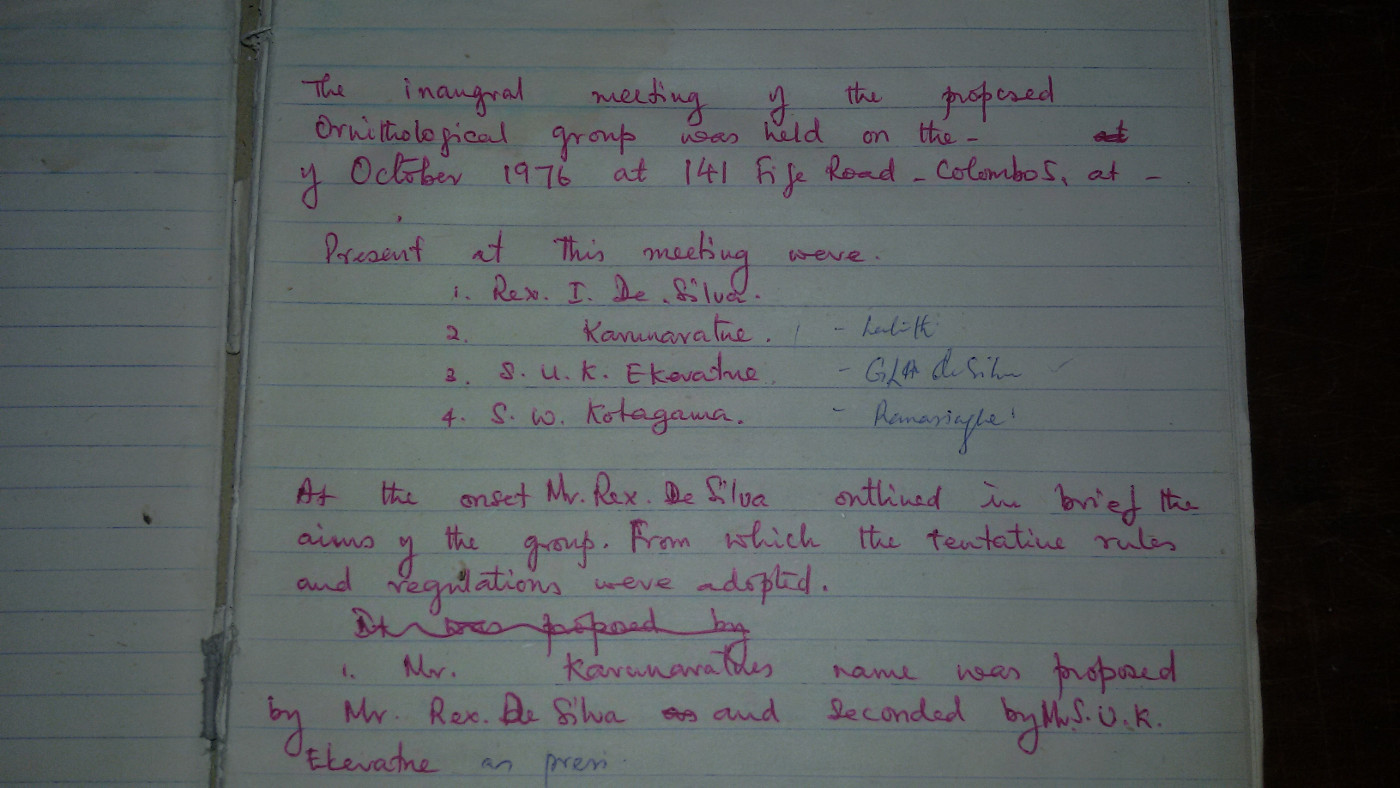 The inaugral meeting of the proposed
Ornithological group was held on the - at
of October 1976 at 141 Fife Road - Colombo 5, at -
Present at this meeting were.
1. Rex. I. De. Silva.
2. Karunaratne. - Lalith
3. S. U. K. Ekaratne. - GLA de Silva
4. S. W. Kotagama. - Ranasinghe
At the onset Mr. Rex. De Silva outlined in brief the
aims of the group. From which the tentative rules
and regulations were adopted.
It was proposed by
1. Mr. Karunaratnes name was proposed
by Mr. Rex. De Silva and seconded by Mr. S. U. K.
Ekeratne as presi